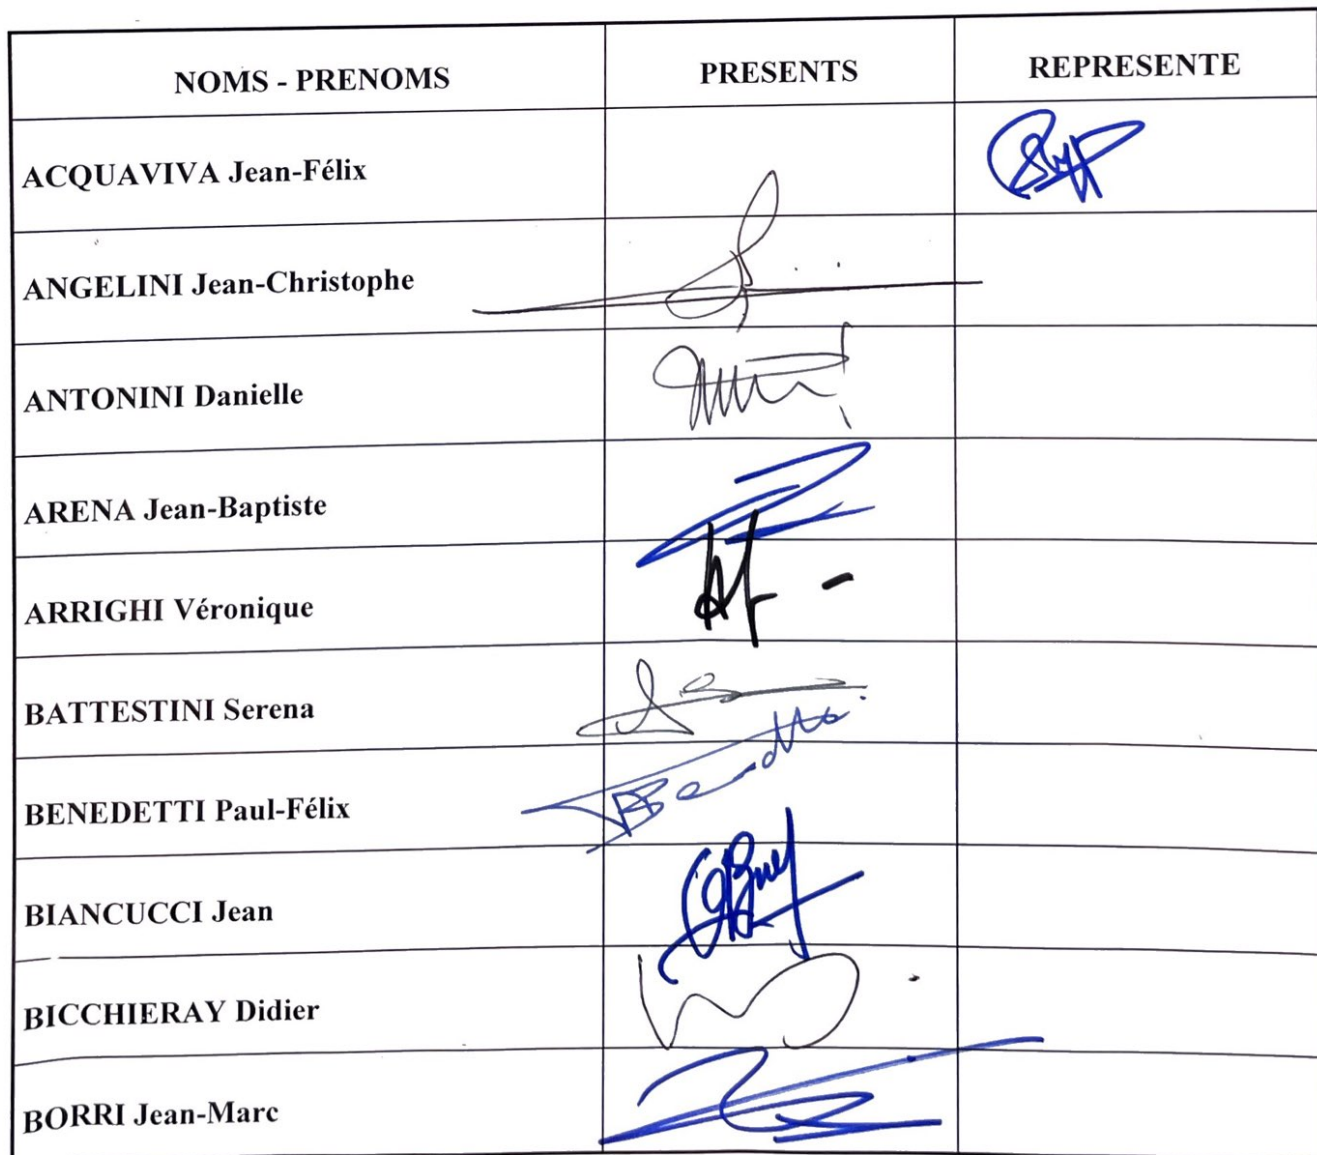 NOMS - PRENOMS PRESENTS REPRESENTE
ACQUAVIVA Jean-Félix
ANGELINI Jean-Christophe
ANTONINI Danielle
ARENA Jean-Baptiste
ARRIGHI Véronique
BATTESTINI Serena
BENEDETTI Paul-Félix
BIANCUCCI Jean
BICCHIERAY Didier
BORRI Jean-Marc